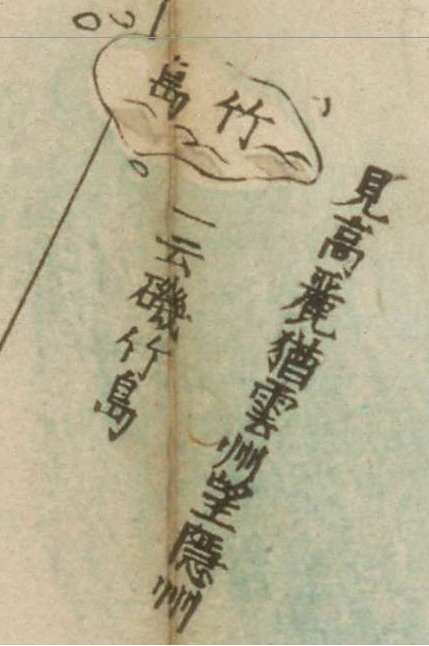 竹島
見高麗猶雲州望隱州
一云磯竹島